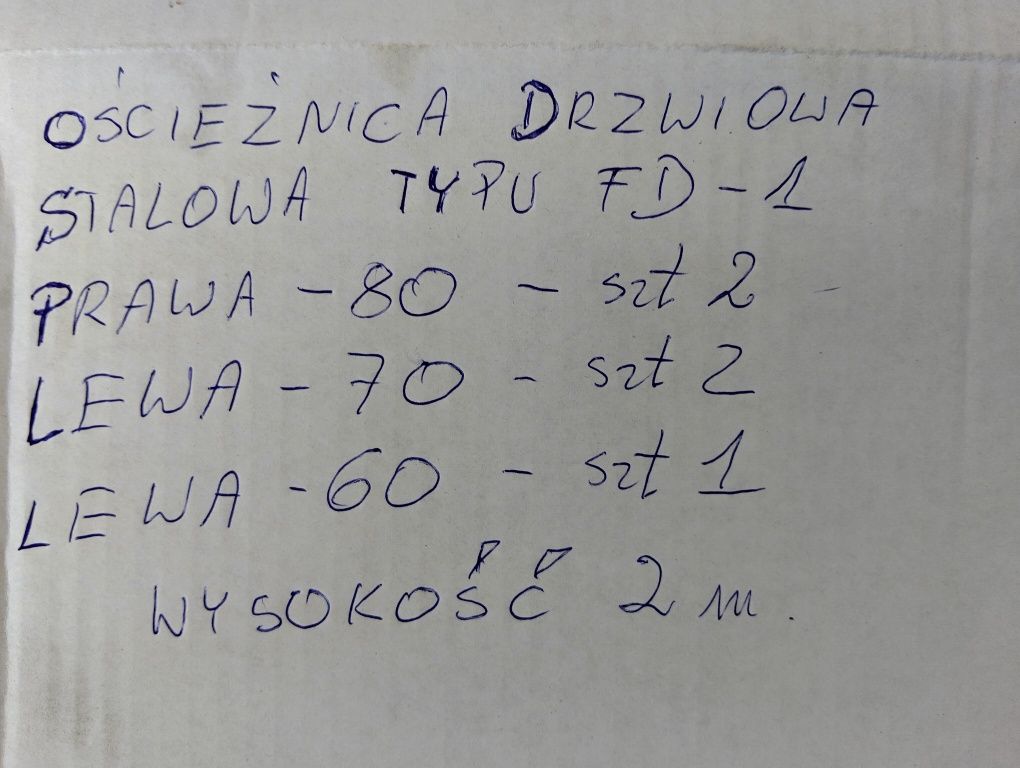 OŚCIEŻNICA DRZWIOWA
STALOWA TYPU FD-1
PRAWA - 80 - szt 2 -
LEWA - 70 - szt 2
LEWA - 60 - szt 1
WYSOKOŚĆ 2 m.